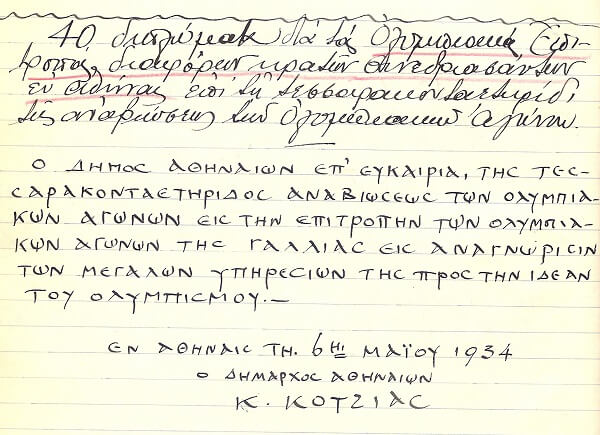 40 διπλώματα διά τάς Ὀλυμπιακάς Ἐπι-
τροπάς διαφόρων κρατῶν συνεδριασάντων
ἐν Ἀθήναις ἐπί τῇ τεσσαρακονταετηρίδι
τῆς ἀναβιώσεως τῶν Ὀλυμπιακῶν Ἀγώνων.
Ο ΔΗΜΟΣ ΑΘΗΝΑΙΩΝ ΕΠ' ΕΥΚΑΙΡΙΑ, ΤΗΣ ΤΕΣ-
ΣΑΡΑΚΟΝΤΑΕΤΗΡΙΔΟΣ ΑΝΑΒΙΩΣΕΩΣ ΤΩΝ ΟΛΥΜΠΙΑ-
ΚΩΝ ΑΓΩΝΩΝ ΕΙΣ ΤΗΝ ΕΠΙΤΡΟΠΗΝ ΤΩΝ ΟΛΥΜΠΙΑ-
ΚΩΝ ΑΓΩΝΩΝ ΤΗΣ ΓΑΛΛΙΑΣ ΕΙΣ ΑΝΑΓΝΩΡΙΣΙΝ
ΤΩΝ ΜΕΓΑΛΩΝ ΥΠΗΡΕΣΙΩΝ ΤΗΣ ΠΡΟΣ ΤΗΝ ΙΔΕΑΝ
ΤΟΥ ΟΛΥΜΠΙΣΜΟΥ.—
ΕΝ ΑΘΗΝΑΙΣ ΤΗ. 6ΗΙ ΜΑΪΟΥ 1934
Ο ΔΗΜΑΡΧΟΣ ΑΘΗΝΑΙΩΝ
Κ. ΚΟΤΖΙΑΣ